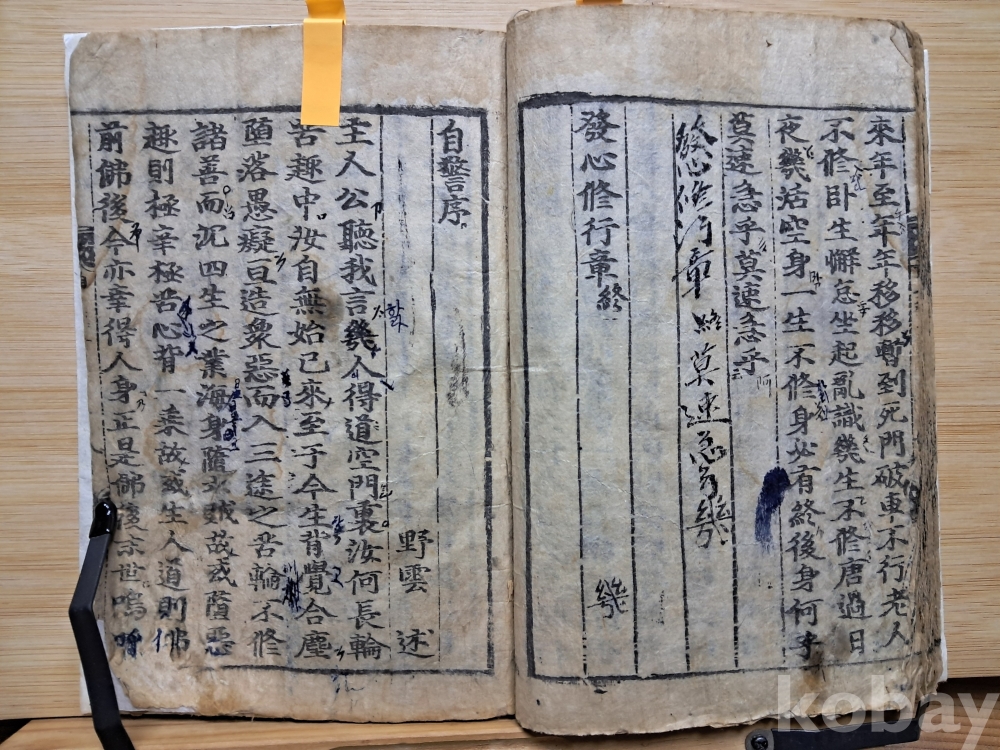 來年至年年移移暫到死門破車不行老人
不修卧生懈怠坐起亂識幾生不修唐過日
夜幾活空身一生不修身必有終後身何乎
莫速急乎莫速急乎
發心修行章 終 莫速急乎
發心修行章終
自警序
野雲 述
主人公聽我言幾人得道空門裏汝何長輪
苦趣中汝自無始已來至于今生背覺合塵
墮落愚癡亘造衆惡而入三途之苦輪不修
諸善而沉四生之業海身隨六賊故或墮惡
趣則極辛極苦心背一乘故或生人道則佛
前佛後今亦幸得人身正是佛後末世嗚呼
kobay